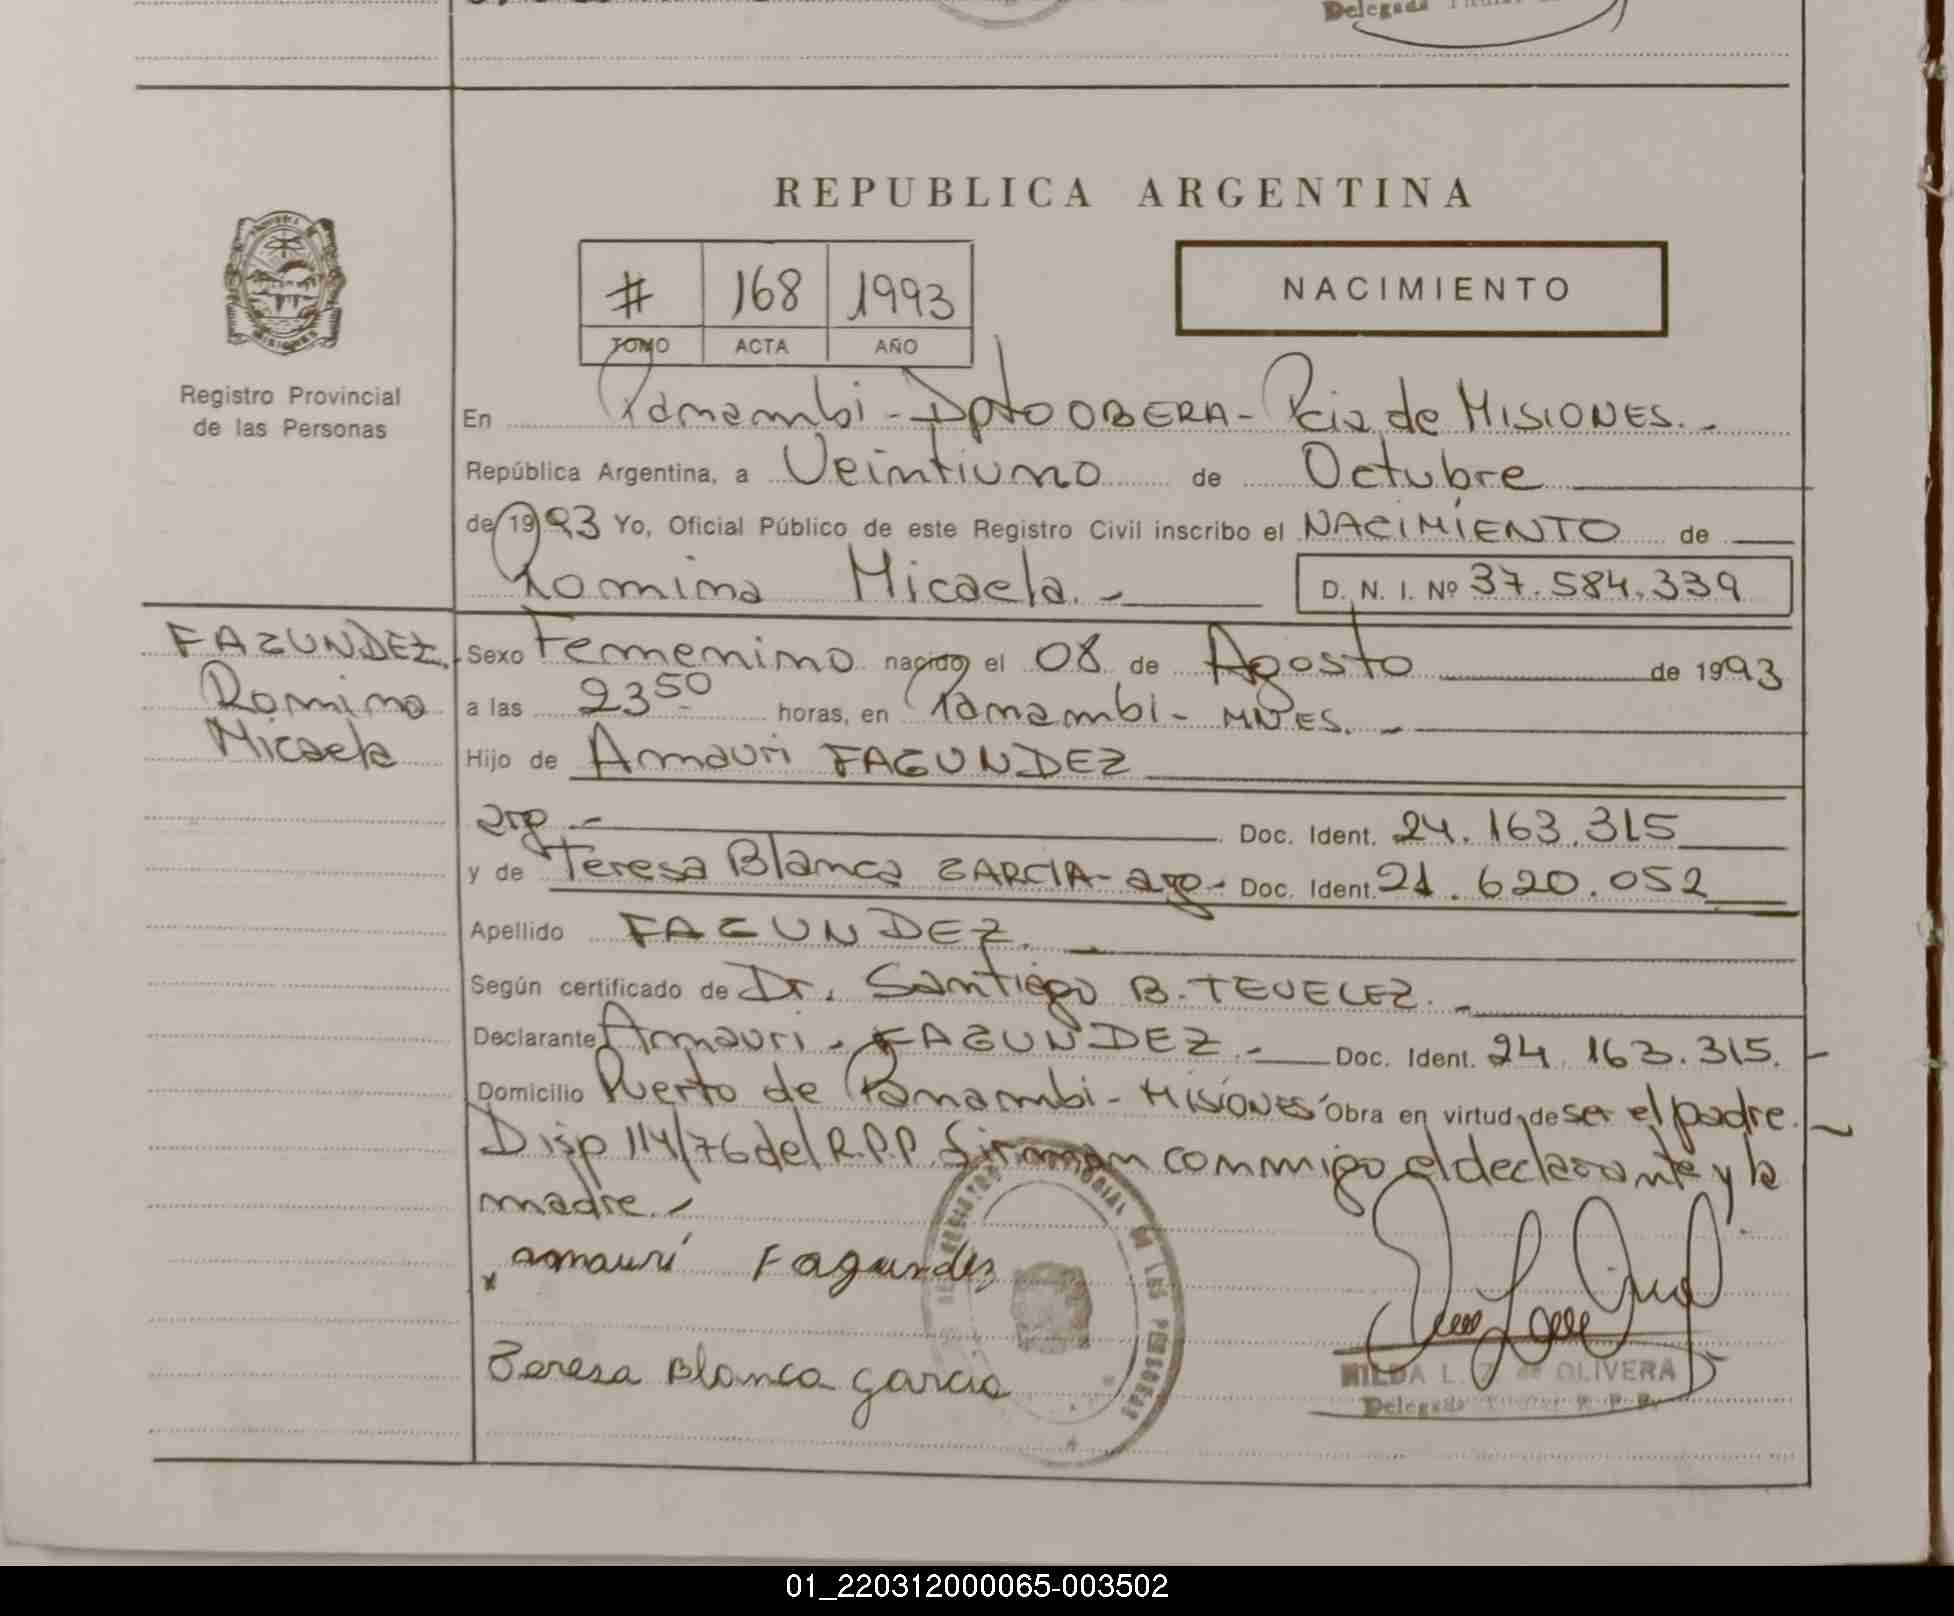 Delegada Titular
REPUBLICA ARGENTINA
# 168 1993
TOMO ACTA AÑO
NACIMIENTO
Registro Provincial
de las Personas
En Panambi - Dpto OBERA - Pcia de MISIONES. -
República Argentina, a Veintiuno de Octubre
de 1993 Yo, Oficial Público de este Registro Civil inscribo el NACIMIENTO de
Romina Micaela. - D. N. I. Nº 37.584.339
FAGUNDEZ.
Romina
Micaela
Sexo Femenino nacido el 08 de Agosto de 1993
a las 23 50 horas, en Panambi - MNES. -
Hijo de Amauri FAGUNDEZ
arg - Doc. Ident. 24.163.315
y de Teresa Blanca GARCIA - arg - Doc. Ident. 21.620.052
Apellido FAGUNDEZ. -
Según certificado de Dr. Santiago B. TEVELEZ. -
Declarante Amauri - FAGUNDEZ. - Doc. Ident. 24.163.315. -
Domicilio Puerto de Panambi - MISIONES Obra en virtud de ser el padre.
Disp 114/76 del R.P.P. firman conmigo el declarante y la
madre. -
x amauri Fagundez
Teresa Blanca garcia
REGISTRO PROVINCIAL DE LAS PERSONAS
HILDA L. Z. de OLIVERA
Delegada Titular R. P. P.
01_220312000065-003502